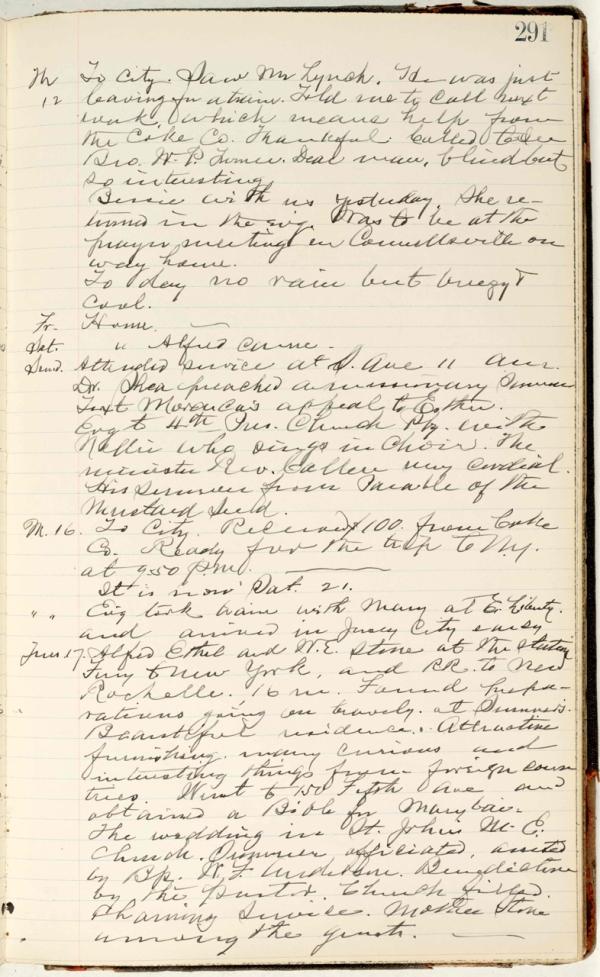 291
Th To City. Saw Mr Lynch. He was just
12 leaving for a train. Told me to call next
week, which means help from
the Coke Co. Thankful. Called to see
Bro. W. P. Turner. Dear man, blind but
so interesting.
Bessie with us yesterday. She re-
turned in the evg. Was to be at the
prayer meeting in Connellsville on
way home.
To day no rain but breezy &
cool.
Fr. Home. —
Sat. " Alfred came.
Sund. Attended service at S. Ave 11 a.m.
Dr. Shea preached a missionary sermon
Text Mordecai's appeal to Esther.
Evg to 4th Pres. Church Pbg. with
Nellie who sings in Choir. The
minister Rev. very cordial.
His sermon from Parable of the
Mustard Seed.
M. 16. To City. Received $100. from Coke
Co. Ready for the trip to N.Y.
at 9.50 p.m. —
It is now Sat. 21.
" " Evg took train with Mary at E. Liberty.
and arrived in Jersey City early
Tues. 17. Alfred Ethel and W.E. Stone at the station
Ferry to New York, and R.R. to New
Rochelle, 16 m. Found prepa-
rations going on bravely at Sumner's
Beautiful residence. Attractive
furnishing. many curious and
interesting things from foreign coun
tries. Went to 150 Fifth Ave and
obtained a Bible for Mary
The wedding in St. John's M. E.
Church. officiated, assisted
by Bp. W. F. Anderson. Benediction
by the pastor. Church filled.
Charming service. Mother Stone
among the guests. —